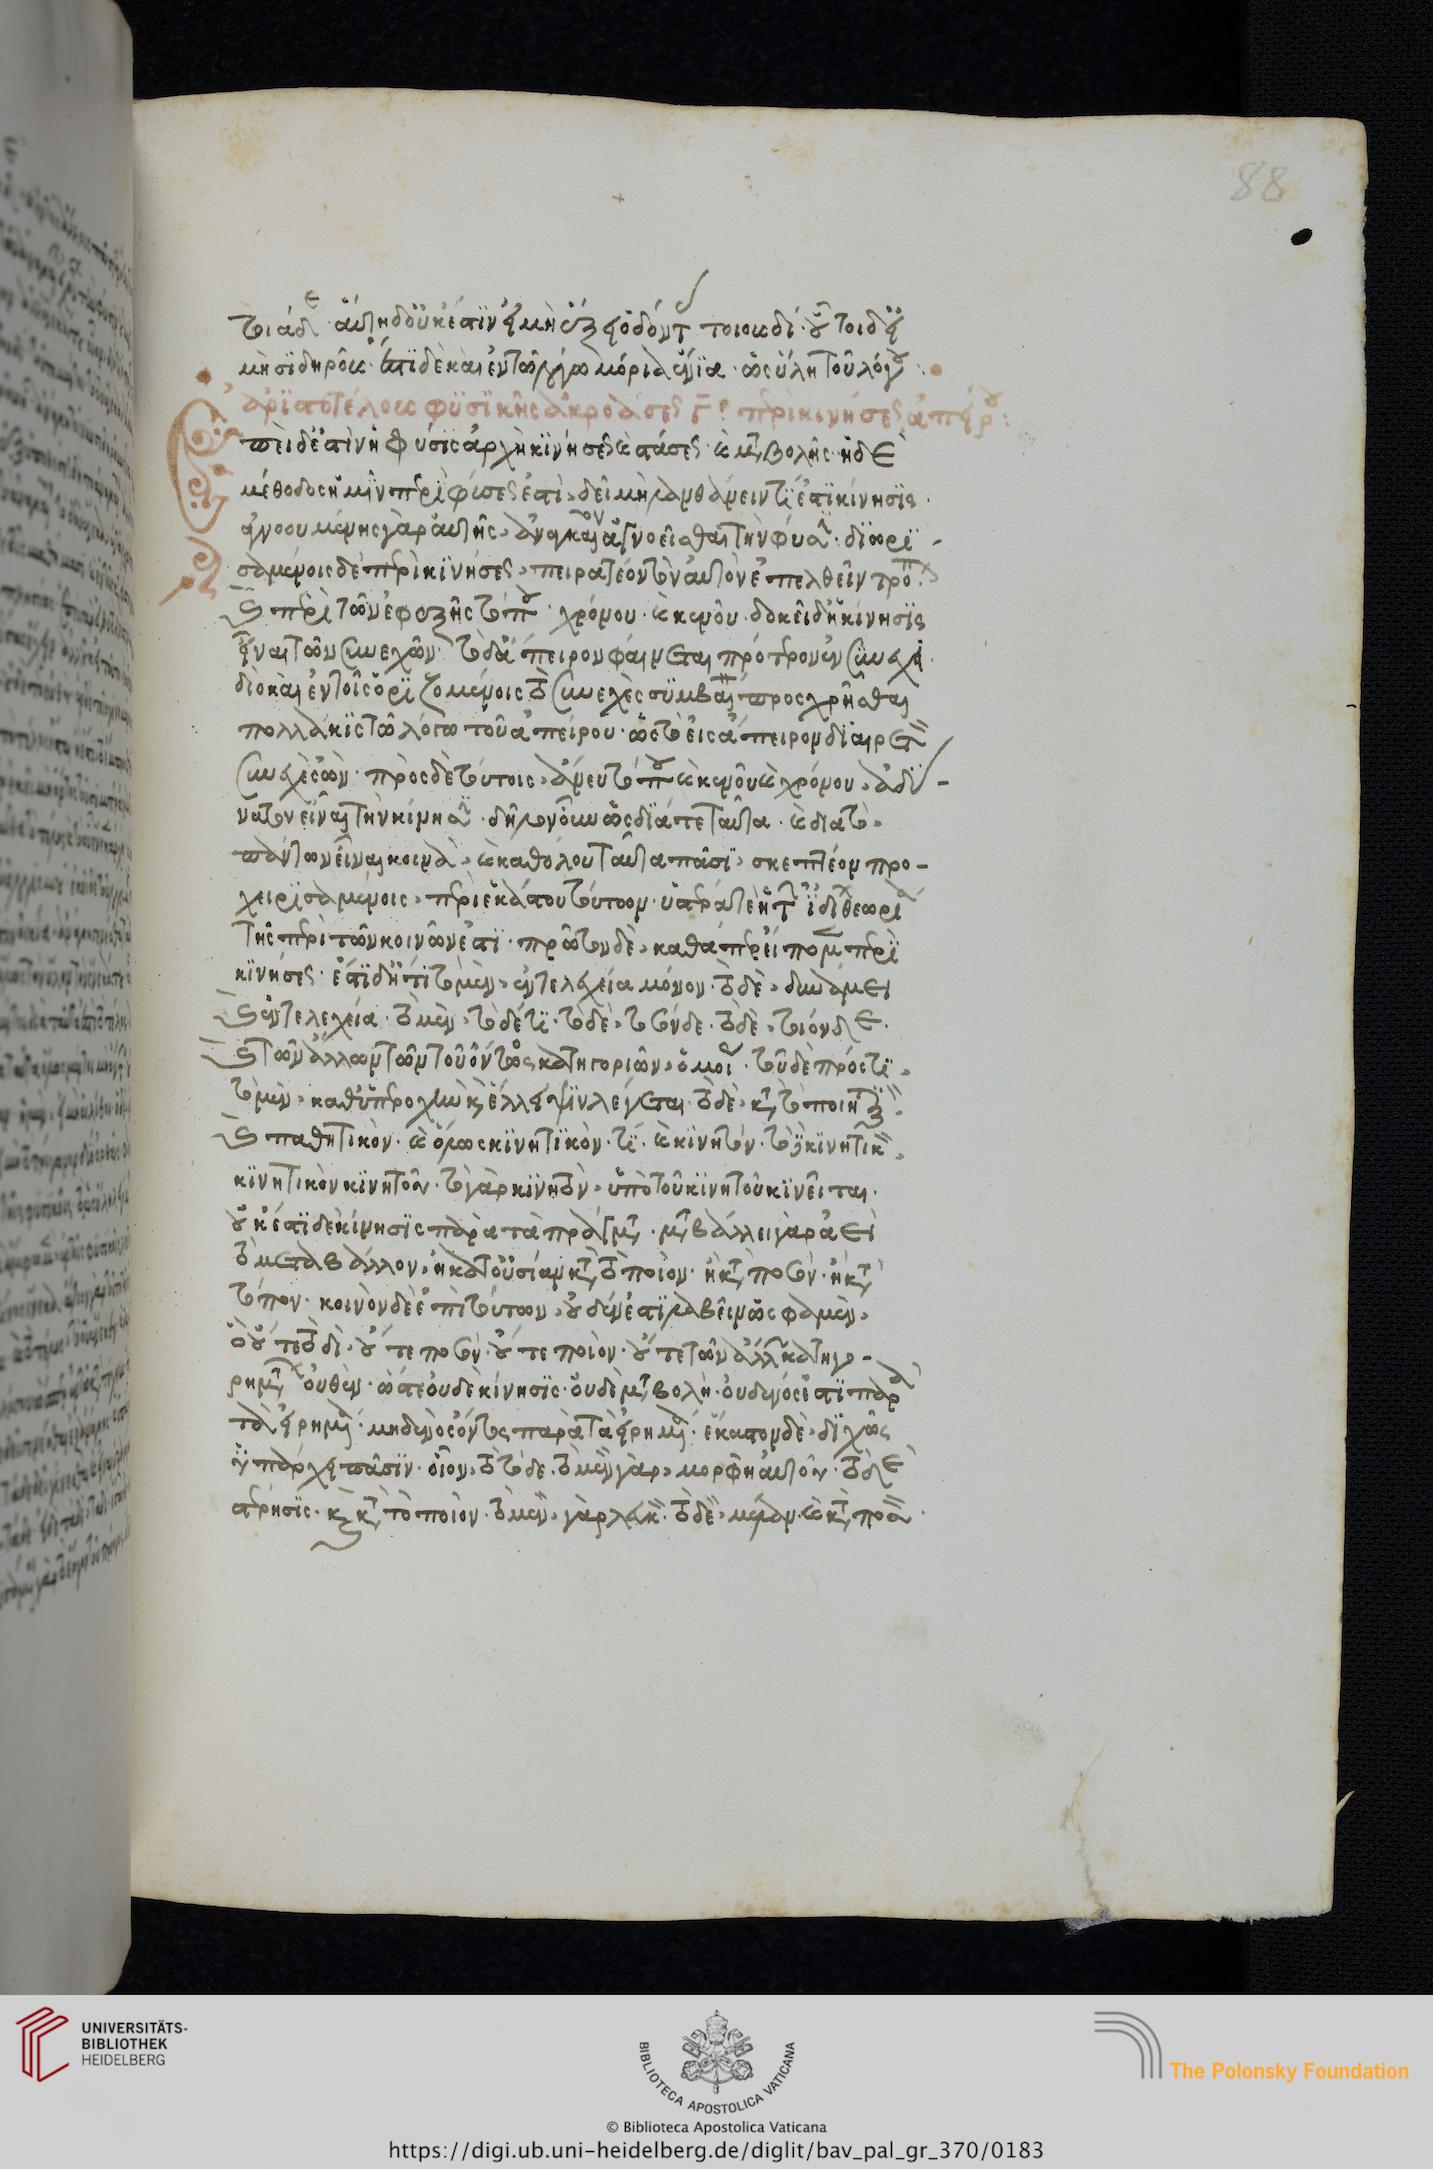 τοιαδὶ· αὕτη δ' οὐκ ἔστιν εἰ μὴ ἕξει ὀδόντας τοιουσδί· οὗτοι δ' εἰ
μὴ σιδηροῦς· ἔστι δὲ καὶ ἐν τῷ λόγῳ μόρια ἔνια· ὡς ὕλη τοῦ λόγου:
ἀριστοτέλους φυσικῆς ἀκροάσεως Γ: περὶ κινήσεως ἀπείρου:
Ἐπεὶ δέ ἐστιν ἡ φύσις ἀρχὴ κινήσεως καὶ στάσεως καὶ μεταβολῆς· ἡ δὲ
μέθοδος ἡμῖν περὶ φύσεώς ἐστι, δεῖ μὴ λανθάνειν τί ἐστι κίνησις·
ἀγνοουμένης γὰρ αὐτῆς, ἀναγκαῖον ἀγνοεῖσθαι τὴν φύσιν· διορι-
σαμένοις δὲ περὶ κινήσεως, πειρατέον τὸν αὐτὸν ἐπελθεῖν τρόπον
καὶ περὶ τῶν ἐφεξῆς τόπου· χρόνου· καὶ κενοῦ· δοκεῖ δ' ἡ κίνησις
εἶναι τῶν συνεχῶν· τὸ δ' ἄπειρον φαίνεται πρότερον ἐν συνεχεῖ·
διὸ καὶ ἐν τοῖς ὁριζομένοις τὸ συνεχὲς συμβαίνει προσχρῆσθαι
πολλάκις τῷ λόγῳ τοῦ ἀπείρου· ὡς τὸ εἰς ἄπειρον διαιρετὸν
συνεχὲς ὄν· πρὸς δὲ τούτοις, ἄνευ τόπου καὶ κενοῦ καὶ χρόνου, ἀδύ-
νατον εἶναι τὴν κίνησιν· δῆλον οὖν ὡς διά τε ταῦτα· καὶ διὰ τὸ
πάντων εἶναι κοινὰ, καὶ καθόλου ταῦτα πᾶσι, σκεπτέον προ-
χειρισαμένοις, περὶ ἑκάστου τούτων· ὑστέρα γὰρ ἡ περὶ τῶν ἰδίων θεωρία
τῆς περὶ τῶν κοινῶν ἐστι· πρῶτον δὲ, καθάπερ εἴπομεν περὶ
κινήσεως· ἔστι δή τι τὸ μὲν, ἐντελεχείᾳ μόνον· τὸ δὲ, δυνάμει
καὶ ἐντελεχείᾳ· τὸ μὲν, τόδε τι· τὸ δὲ, τοσόνδε· τὸ δὲ, τοιόνδε·
καὶ τῶν ἄλλων τῶν τοῦ ὄντος κατηγοριῶν, ὁμοίως· τοῦ δὲ πρός τι,
τὸ μὲν, καθ' ὑπεροχὴν καὶ ἔλλειψιν λέγεται· τὸ δὲ, κατὰ τὸ ποιητικὸν
καὶ παθητικόν· καὶ ὅλως κινητικόν· τι· καὶ κινητόν· τὸ γὰρ κινητικὸν,
κινητικὸν κινητοῦ· τὸ γὰρ κινητὸν, ὑπὸ τοῦ κινητοῦ κινεῖται·
οὐκ ἔστι δὲ κίνησις παρὰ τὰ πράγματα· μεταβάλλει γὰρ ἀεὶ
τὸ μεταβάλλον, ἢ κατ' οὐσίαν ἢ κατὰ τὸ ποιόν· ἢ κατὰ ποσόν· ἢ κατὰ
τόπον· κοινὸν δὲ ἐπὶ τούτων, οὐδέν ἐστι λαβεῖν ὡς φαμὲν,
ὃ οὔτε τοδὶ· οὔτε ποσόν· οὔτε ποιόν· οὔτε τῶν ἄλλων κατηγο-
ρημάτων οὐθέν· ὥστε οὐδὲ κίνησις· οὐδὲ μεταβολὴ· οὐδενός ἐστι παρὰ
τὰ εἰρημένα· μηδενὸς ὄντος παρὰ τὰ εἰρημένα· ἕκαστον δὲ, διχῶς
ὑπάρχει πᾶσιν· οἷον, τὸ τόδε· τὸ μὲν γὰρ, μορφὴ αὐτοῦ· τὸ δὲ
στέρησις· καὶ κατὰ τὸ ποιόν· τὸ μὲν, γὰρ λευκὸν· τὸ δὲ, μέλαν· καὶ κατὰ ποσὸν·
88
UNIVERSITÄTS-
BIBLIOTHEK
HEIDELBERG
BIBLIOTECA APOSTOLICA VATICANA
The Polonsky Foundation
© Biblioteca Apostolica Vaticana
https://digi.ub.uni-heidelberg.de/diglit/bav_pal_gr_370/0183